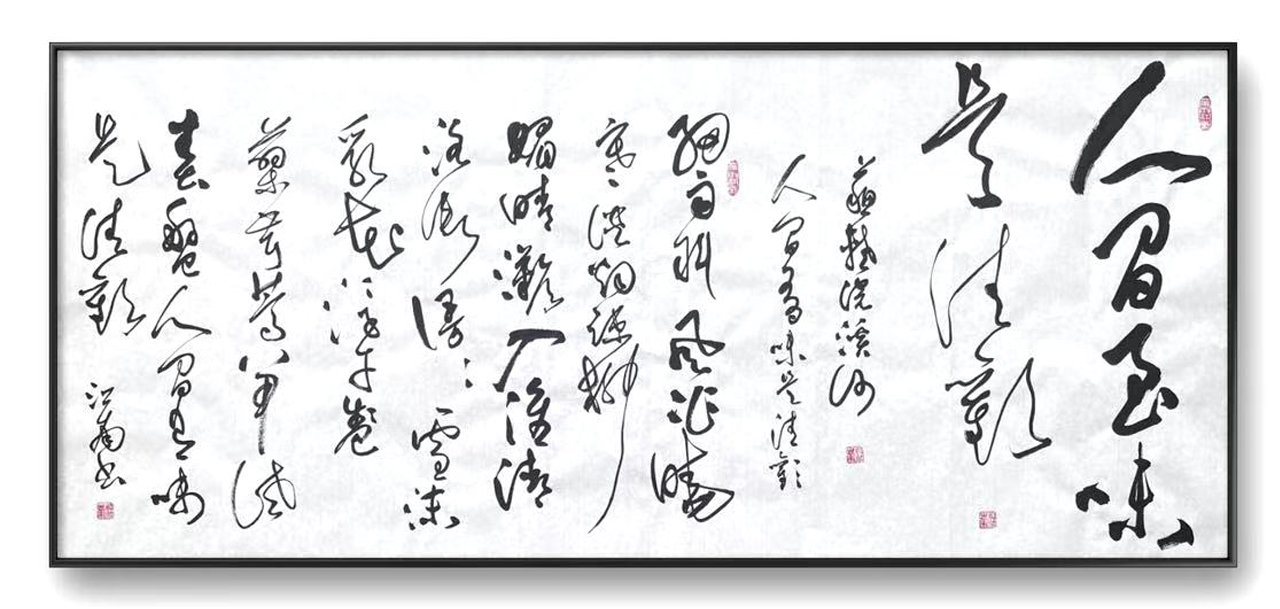 人間有味
是清歡
蘇軾浣溪沙
人間有味是清歡
細雨斜風作曉
寒淡煙疏柳
媚晴灘入淮清
洛漸漫漫雪沫
乳花浮午盞
蓼茸蒿筍試
春盤人間有味
是清歡